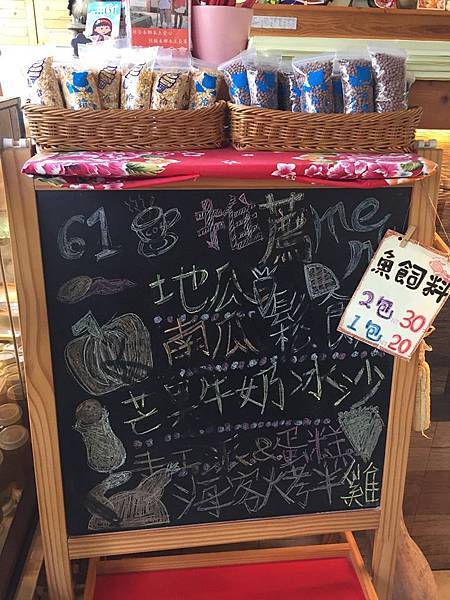 61 推薦 menu
地瓜鬆
南瓜鬆
芒果牛奶冰沙
手工 &蛋糕
海客烤半雞
魚飼料
2包30
1包20